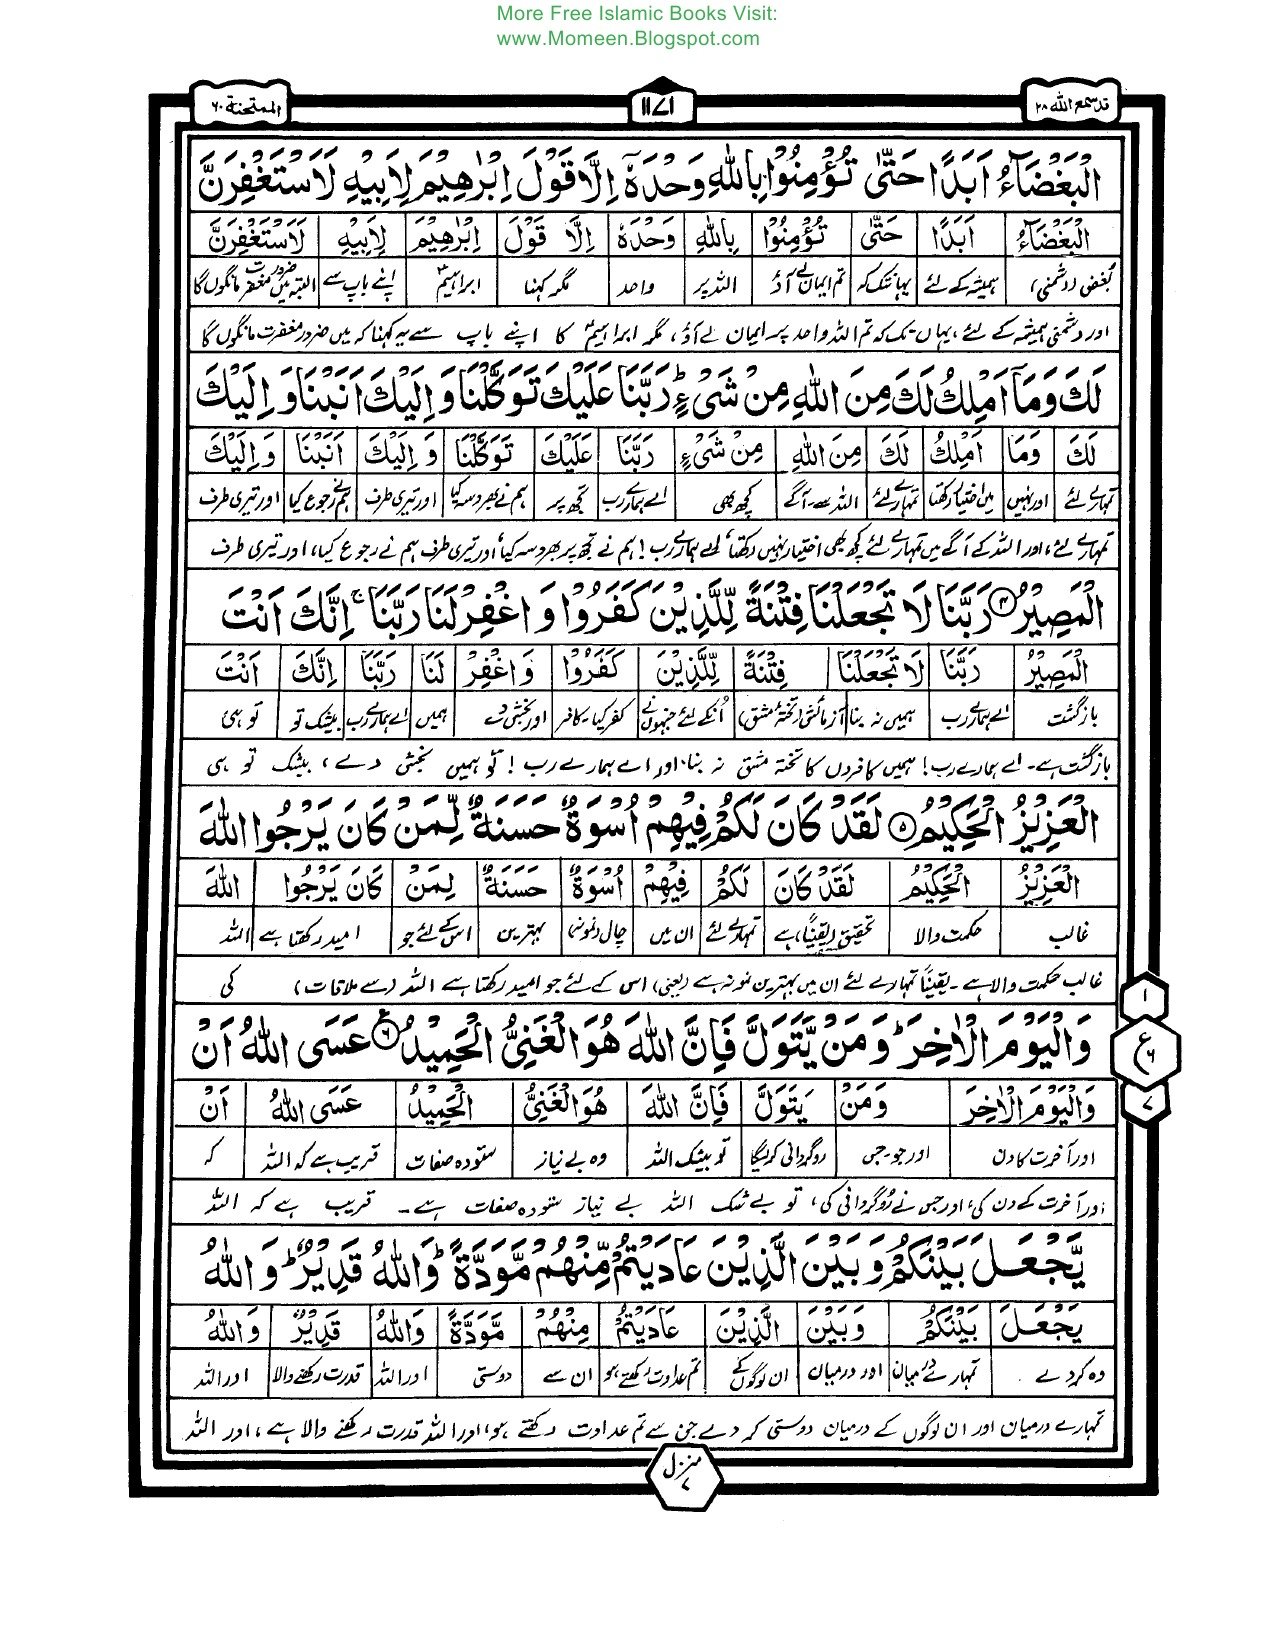 More Free Islamic Books Visit:
www.Momeen.Blogspot.com
قد سمع الله ۲۸
۱۱۷۱
الممتحنة ۶۰
الْبَغْضَآءُ اَبَدًا حَتّٰى تُؤْمِنُوْا بِاللّٰهِ وَحْدَهٗۤ اِلَّا قَوْلَ اِبْرٰهِيْمَ لِاَبِيْهِ لَاَسْتَغْفِرَنَّ
الْبَغْضَآءُ اَبَدًا حَتّٰى تُؤْمِنُوْا بِاللّٰهِ وَحْدَهٗ اِلَّا قَوْلَ اِبْرٰهِيْمَ لِاَبِيْهِ لَاَسْتَغْفِرَنَّ
بُغض (دشمنی) ہمیشہ کے لئے یہانتک کہ تم ایمان لے آؤ اللہ پر واحد مگر کہنا ابراہیمؑ اپنے باپ سے البتہ میں ضرور مغفرت مانگوں گا
اور دشمنی ہمیشہ کے لئے، یہاں تک کہ تم اللہ واحد پر ایمان لے آؤ، مگر ابراہیمؑ کا اپنے باپ سے یہ کہنا کہ میں ضرور مغفرت مانگوں گا
لَكَ وَمَاۤ اَمْلِكُ لَكَ مِنَ اللّٰهِ مِنْ شَىْءٍ ؕ رَبَّنَا عَلَيْكَ تَوَكَّلْنَا وَ اِلَيْكَ اَنَبْنَا وَ اِلَيْكَ
لَكَ وَمَا اَمْلِكُ لَكَ مِنَ اللّٰهِ مِنْ شَىْءٍ رَبَّنَا عَلَيْكَ تَوَكَّلْنَا وَ اِلَيْكَ اَنَبْنَا وَ اِلَيْكَ
تمہارے لئے اور نہیں میں اختیار رکھتا تمہارے لئے اللہ سے۔ آگے کچھ بھی اے ہمارے رب تجھ پر ہم نے بھروسہ کیا اور تیری طرف ہم نے رجوع کیا اور تیری طرف
تمہارے لئے، اور اللہ کے آگے میں تمہارے لئے کچھ بھی اختیار نہیں رکھتا، اے ہمارے رب! ہم نے تجھ پر بھروسہ کیا، اور تیری طرف ہم نے رجوع کیا، اور تیری طرف
الْمَصِيْرُ ۴ رَبَّنَا لَا تَجْعَلْنَا فِتْنَةً لِّلَّذِيْنَ كَفَرُوْا وَ اغْفِرْ لَنَا رَبَّنَا ۚ اِنَّكَ اَنْتَ
الْمَصِيْرُ رَبَّنَا لَا تَجْعَلْنَا فِتْنَةً لِّلَّذِيْنَ كَفَرُوْا وَ اغْفِرْ لَنَا رَبَّنَا اِنَّكَ اَنْتَ
بازگشت اے ہمارے رب ہمیں نہ بنا آزمائش (تختۂ مشق) اُنکے لئے جنہوں نے کفر کیا۔ کافر اور بخش دے ہمیں اے ہمارے رب بیشک تو تو ہی
بازگشت ہے۔ اے ہمارے رب! ہمیں کافروں کا تختۂ مشق نہ بنا، اور اے ہمارے رب! تو ہمیں بخش دے، بیشک تو ہی
الْعَزِيْزُ الْحَكِيْمُ ۵ لَقَدْ كَانَ لَكُمْ فِيْهِمْ اُسْوَةٌ حَسَنَةٌ لِّمَنْ كَانَ يَرْجُوا اللّٰهَ
الْعَزِيْزُ الْحَكِيْمُ لَقَدْ كَانَ لَكُمْ فِيْهِمْ اُسْوَةٌ حَسَنَةٌ لِمَنْ كَانَ يَرْجُوا اللّٰهَ
غالب حکمت والا تحقیق (یقیناً) ہے تمہارے لئے ان میں چال (نمونہ) بہترین اس کے لئے جو امید رکھتا ہے اللہ
غالب حکمت والا ہے۔ یقیناً تمہارے لئے ان میں بہترین نمونہ ہے (یعنی) اس کے لئے جو امید رکھتا ہے اللہ (سے ملاقات) کی
وَ الْيَوْمَ الْاٰخِرَ ؕ وَ مَنْ يَّتَوَلَّ فَاِنَّ اللّٰهَ هُوَ الْغَنِىُّ الْحَمِيْدُ ۶ ع عَسَى اللّٰهُ اَنْ
وَ الْيَوْمَ الْاٰخِرَ وَمَنْ يَتَوَلَّ فَاِنَّ اللّٰهَ هُوَ الْغَنِىُّ الْحَمِيْدُ عَسَى اللّٰهُ اَنْ
اور آخرت کا دن اور جو۔ جس روگردانی کریگا تو بیشک اللہ وہ بے نیاز ستودہ صفات قریب ہے کہ اللہ کہ
اور آخرت کے دن کی، اور جس نے رُوگردانی کی، تو بے شک اللہ بے نیاز ستودہ صفات ہے۔ قریب ہے کہ اللہ
يَّجْعَلَ بَيْنَكُمْ وَ بَيْنَ الَّذِيْنَ عَادَيْتُمْ مِّنْهُمْ مَّوَدَّةً ؕ وَ اللّٰهُ قَدِيْرٌ ؕ وَ اللّٰهُ
يَجْعَلَ بَيْنَكُمْ وَ بَيْنَ الَّذِيْنَ عَادَيْتُمْ مِنْهُمْ مَّوَدَّةً وَاللّٰهُ قَدِيْرٌ وَ اللّٰهُ
وہ کر دے تمہارے درمیان اور درمیان ان لوگوں کے تم عداوت رکھتے ہو ان سے دوستی اور اللہ قدرت رکھنے والا اور اللہ
تمہارے درمیان اور ان لوگوں کے درمیان دوستی کر دے جن سے تم عداوت رکھتے ہو، اور اللہ قدرت رکھنے والا ہے، اور اللہ
۱
ع ۶
۷
منزل ۷